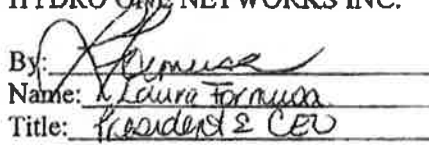 HYDRO ONE NETWORKS INC.
By: LFormusa
Name: Laura Formusa
Title: President & CEO